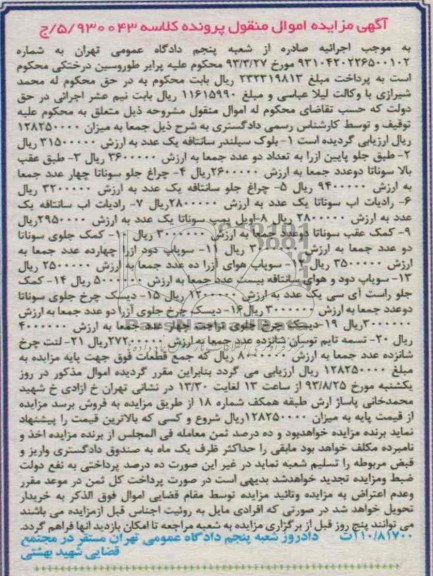 آگهی مزایده اموال منقول پرونده کلاسه ۹۳۰۰۴۳/۵/ج
به موجب اجرائیه صادره از شعبه پنجم دادگاه عمومی تهران به شماره
۹۳۱۰۴۲۰۲۲۶۵۰۰۱۰۲ مورخ ۹۳/۳/۲۷ محکوم علیه پرایر طوروسین درختکی محکوم
است به پرداخت مبلغ ۲۳۲۳۱۹۸۱۳ ریال بابت محکوم به در حق محکوم له محمد
شیرازی با وکالت لیلا عباسی و مبلغ ۱۱۶۱۵۹۹۰ ریال بابت نیم عشر اجرائی در حق
دولت که حسب تقاضای محکوم له اموال منقول مشروحه ذیل متعلق به محکوم علیه
توقیف و توسط کارشناس رسمی دادگستری به شرح ذیل جمعا به میزان ۱۲۸۲۵۰۰۰۰
ریال ارزیابی گردیده است ۱- بلوک سیلندر سانتافه یک عدد به ارزش ۳۱۵۰۰۰۰۰ ریال
۲- طبق جلو پایین ازرا به تعداد دو عدد جمعا به ارزش ۳۶۰۰۰۰۰ ریال ۳- طبق عقب
بالا سوناتا دوعدد جمعا به ارزش ۲۶۰۰۰۰۰ریال ۴- چراغ جلو سوناتا چهار عدد جمعا
به ارزش ۹۴۰۰۰۰۰ ریال ۵- چراغ جلو سانتافه یک عدد به ارزش ۳۲۰۰۰۰۰ ریال
۶- رادیات اب سوناتا یک عدد به ارزش ۲۸۰۰۰۰۰ریال ۷- رادیات اب سانتافه یک
عدد به ارزش ۲۸۰۰۰۰۰ ریال ۸-اویل پمپ سوناتا یک عدد به ارزش ۲۹۵۰۰۰۰ریال
۹- کمک عقب سوناتا دوعدد جمعا به ارزش ۳۰۰۰۰۰۰ ریال ۱۰- کمک جلوی سوناتا
دو عدد جمعا به ارزش ریال ۱۱- سوپاپ دود ازرا چهارده عدد جمعا به
ارزش ۳۵۰۰۰۰۰ ریال ۱۲- سوپاپ هوای ازرا ده عدد جمعا به ارزش ۲۵۰۰۰۰۰ ریال
۱۳- سوپاپ دود و هوای سانتافه بیست عدد جمعا به ارزش ۵۰۰۰۰۰۰ ریال ۱۴- کمک
جلو راست آی سی یک عدد به ارزش ۱۲۰۰۰۰۰ ریال ۱۵- دیسک چرخ جلوی سوناتا
دوعدد جمعا به ارزش ۳۰۰۰۰۰۰ ریال ۱۶- دیسک چرخ جلوی آزرا دو عدد جمعا به ارزش
۲۰۰۰۰۰۰ریال ۱۹-دیسک چرخ جلوی چهار عدد جمعا به ارزش ۴۰۰۰۰۰۰
ریال ۲۰- تسمه تایم توسان شانزده عدد جمعا به ارزش ریال ۲۱- لنت چرخ
شانزده عدد جمعا به ارزش ریال که جمع قطعات فوق جهت پایه مزایده به
مبلغ ۱۲۸۲۵۰۰۰۰ ریال ارزیابی می گردد بنابراین مقرر گردیده اموال مذکور در روز
یکشنبه مورخ ۹۳/۸/۲۵ از ساعت ۱۳ لغایت ۱۳/۳۰ در نشانی تهران خ ازادی خ شهید
محمدخانی پاساژ ارش طبقه همکف شماره ۱۸ از طریق مزایده به فروش برسد مزایده
از قیمت پایه به میزان ۱۲۸۲۵۰۰۰۰ریال شروع و کسی که بالاترین قیمت را پیشنهاد
نماید برنده مزایده خواهدبود و ده درصد ثمن معامله فی المجلس از برنده مزایده اخذ و
نامبرده مکلف خواهد بود مابقی را حداکثر ظرف یک ماه به صندوق دادگستری واریز و
قبض مربوطه را تسلیم شعبه نماید در غیر این صورت ده درصد پرداختی به نفع دولت
ضبط ومزایده تجدید خواهدشد بدیهی است در صورت پرداخت کل ثمن در موعد مقرر
وعدم اعتراض به مزایده وتائید مزایده توسط مقام قضایی اموال فوق الذکر به خریدار
تحویل خواهد شد در صورتی که افرادی مایل به روئیت اجناس قبل ازمزایده می باشند
می توانند پنج روز قبل از برگزاری مزایده به شعبه مراجعه تا امکان بازدید انها فراهم گردد.
۲۱۰/۸۱۷۰۰ت دادورز شعبه پنجم دادگاه عمومی تهران مستقر در مجتمع
قضایی شهید بهشتی